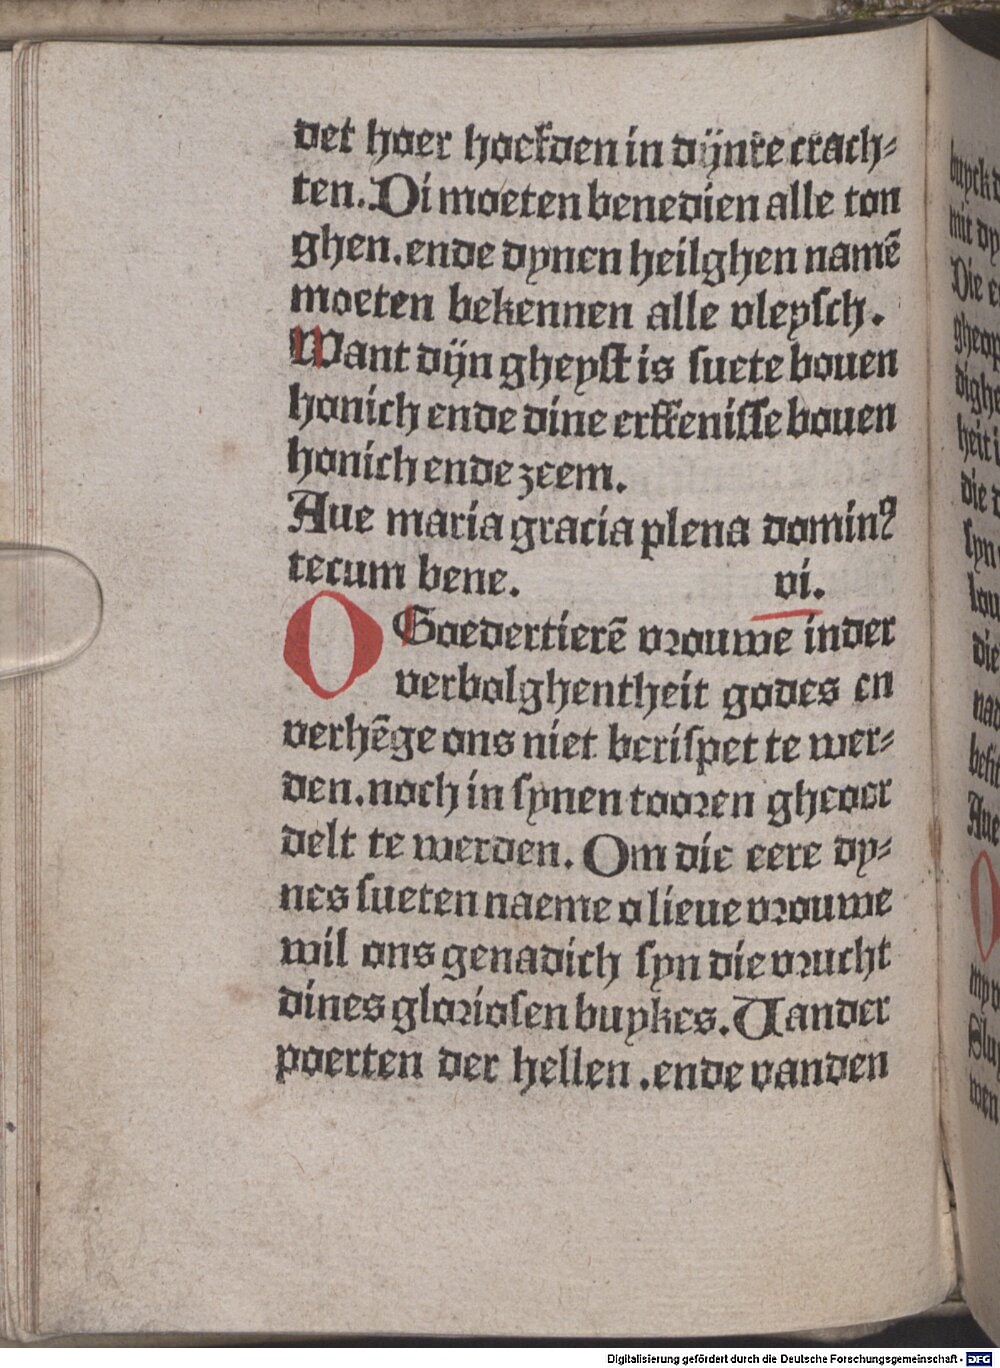 det hoer hoefden in dijnre crach⸗
ten. Di moeten benedien alle ton
ghen. ende dynen heilghen namē
moeten bekennen alle vleysch.
Want dijn gheyst is suete bouen
honich ende dine erffenisse bouen
honich ende zeem.
Aue maria gracia plena dominꝰ
tecum bene. vi.
O Goedertierē vrouwe in der
verbolghentheit godes en
verhēge ons niet berispet te wer⸗
den. noch in synen tooren gheoer
delt te werden. Om die eere dy⸗
nes sueten naeme o lieue vrouwe
wil ons genadich syn die vrucht
dines gloriosen buykes. Uan der
poerten der hellen . ende van den
buyck
mit dy
Die
gheop
digh
heit
die
syn
lou
die
Aue
O
wen
Digitalisierung gefördert durch die Deutsche Forschungsgemeinschaft - DFG